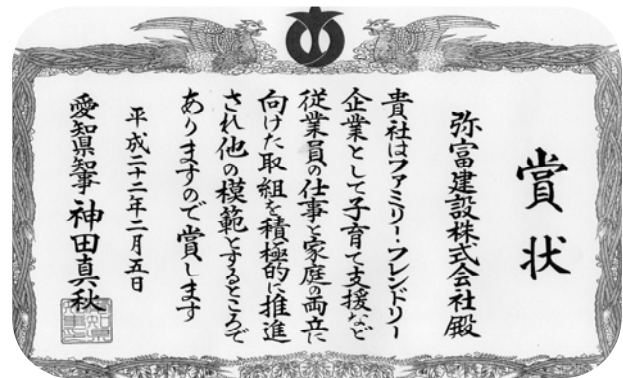 賞状
弥富建設株式会社殿
貴社はファミリー・フレンドリー
企業として子育て支援など
従業員の仕事と家庭の両立に
向けた取組を積極的に推進
され他の模範とするところで
ありますので賞します
平成二十二年二月五日
愛知県知事 神田真秋